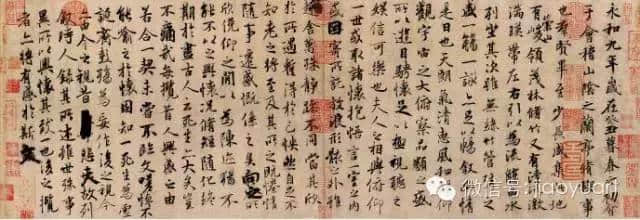 永和九年歲在癸丑暮春之初會
于會稽山陰之蘭亭脩稧事
也群賢畢至少長咸集此地
有崇山峻領茂林脩竹又有清流激
湍暎帶左右引以為流觴曲水
列坐其次雖無絲竹管弦之
盛一觴一詠亦足以暢敘幽情
是日也天朗氣清惠風和暢仰
觀宇宙之大俯察品類之盛
所以遊目騁懷足以極視聽之
娛信可樂也夫人之相與俯仰
一世或取諸懷抱悟言一室之內
或因寄所託放浪形骸之外雖
趣舍萬殊靜躁不同當其欣
於所遇蹔得於己怏然自足不
知老之將至及其所之既惓情
隨事遷感慨係之矣向之所
欣俛仰之間以為陳跡猶不
能不以之興懷況脩短隨化終
期於盡古人云死生亦大矣豈
不痛哉每攬昔人興感之由
若合一契未嘗不臨文嗟悼不
能喻之於懷固知一死生為虛
誕齊彭殤為妄作後之視今
亦由今之視昔悲夫故列
敘時人錄其所述雖世殊事
異所以興懷其致一也後之攬
者亦將有感於斯文
微信号: jiaoyuart